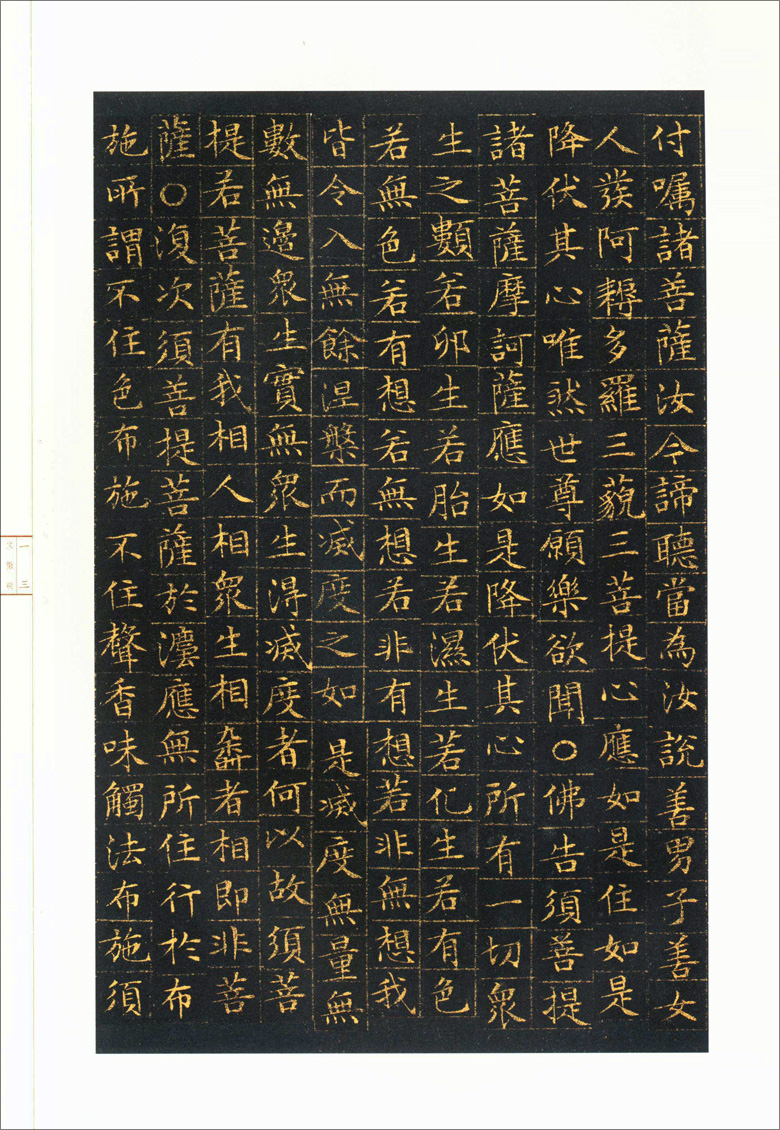 付囑諸菩薩汝今諦聽當為汝說善男子善女
人發阿耨多羅三藐三菩提心應如是住如是
降伏其心唯然世尊願樂欲聞○佛告須菩提
諸菩薩摩訶薩應如是降伏其心所有一切眾
生之類若卵生若胎生若濕生若化生若有色
若無色若有想若無想若非有想若非無想我
皆令入無餘涅槃而滅度之如是滅度無量無
數無邊眾生實無眾生得滅度者何以故須菩
提若菩薩有我相人相眾生相壽者相即非菩
薩○復次須菩提菩薩於法應無所住行於布
施所謂不住色布施不住聲香味觸法布施須
一三